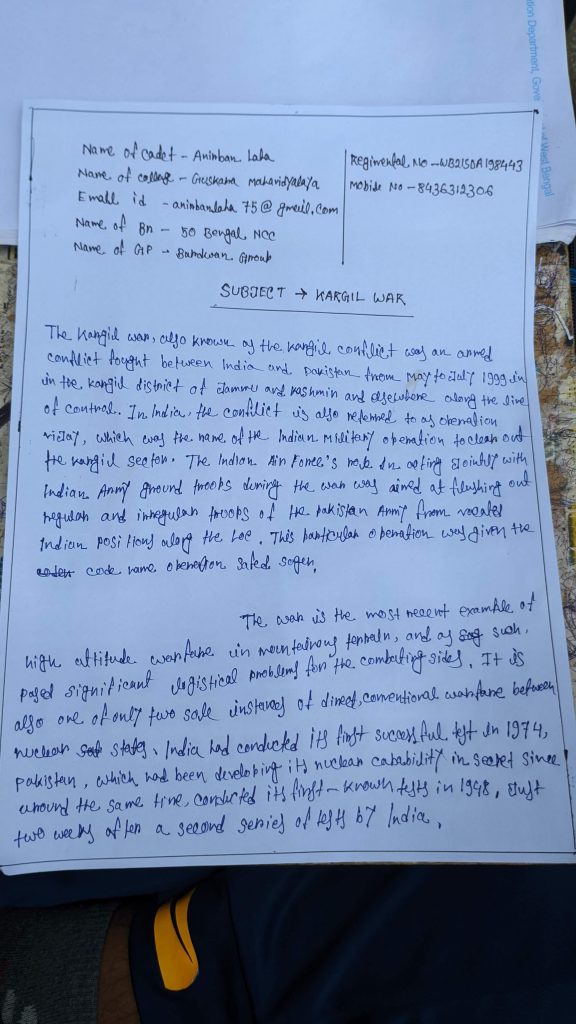 tion Department, Gove
of West Bengal
Name of cadet - Anirban Laha
Regimental No - WB21SDA198443
Name of college - Gushkara Mahavidyalaya
Mobile No - 8436312306
Email id - anirbanlaha 75@gmail.com
Name of Bn - 50 Bengal NCC
Name of GP - Burdwan Group
SUBJECT → KARGIL WAR
The Kargil war, also known as the kargil conflict was an armed
conflict fought between India and pakistan from May to July 1999 in
in the kargil district of Jammu and kashmir and elsewhere along the line
of control. In India, the conflict is also referred to as operation
vijay, which was the name of the Indian Military operation to clear out
the kargil sector. The Indian Air Force's role in acting jointly with
Indian Army ground troops during the war was aimed at flushing out
regular and irregular troops of the pakistan Army from vacated
Indian positions along the Loc. This particular operation was given the
code name operation safed sager.
The war is the most recent example of
high altitude warfare in mountainous terrain, and as such,
posed significant logistical problems for the combating sides. It is
also one of only two sole instances of direct, conventional warfare between
nuclear states. India had conducted its first successful test in 1974,
pakistan, which had been developing its nuclear capability in secret since
around the same time, conducted its first-known tests in 1998, Just
two weeks after a second series of tests by India.